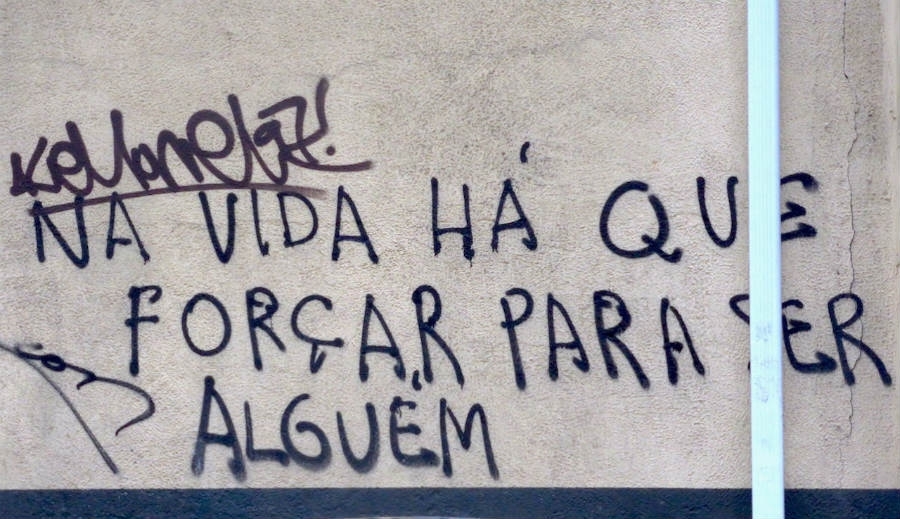 NA VIDA HÁ QUE
FORÇAR PARA SER
ALGUÉM